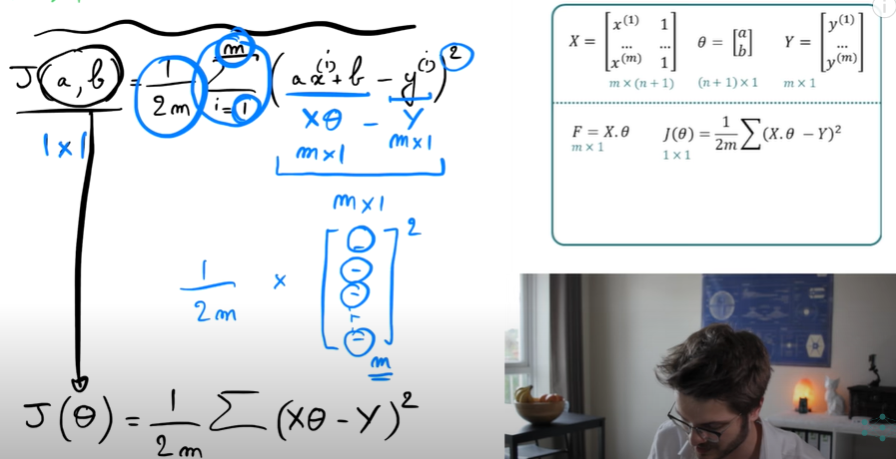 J(a, b) = 1/2m Σ_{i=1}^{m} (ax^(i) + b - y^(i))^2
1x1
Xθ - Y
mx1 mx1
mx1
1/2m × [ ]^2
m
J(θ) = 1/2m Σ (Xθ - Y)^2
X = [x^(1) 1 ... ... x^(m) 1] θ = [a b] Y = [y^(1) ... y^(m)]
m × (n + 1) (n + 1) × 1 m × 1
F = X.θ J(θ) = 1/2m Σ(X.θ - Y)^2
m × 1 1 × 1
i